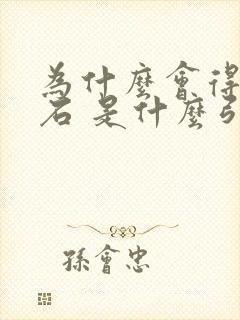 為什麼會得
石 是什麼
孫會忠